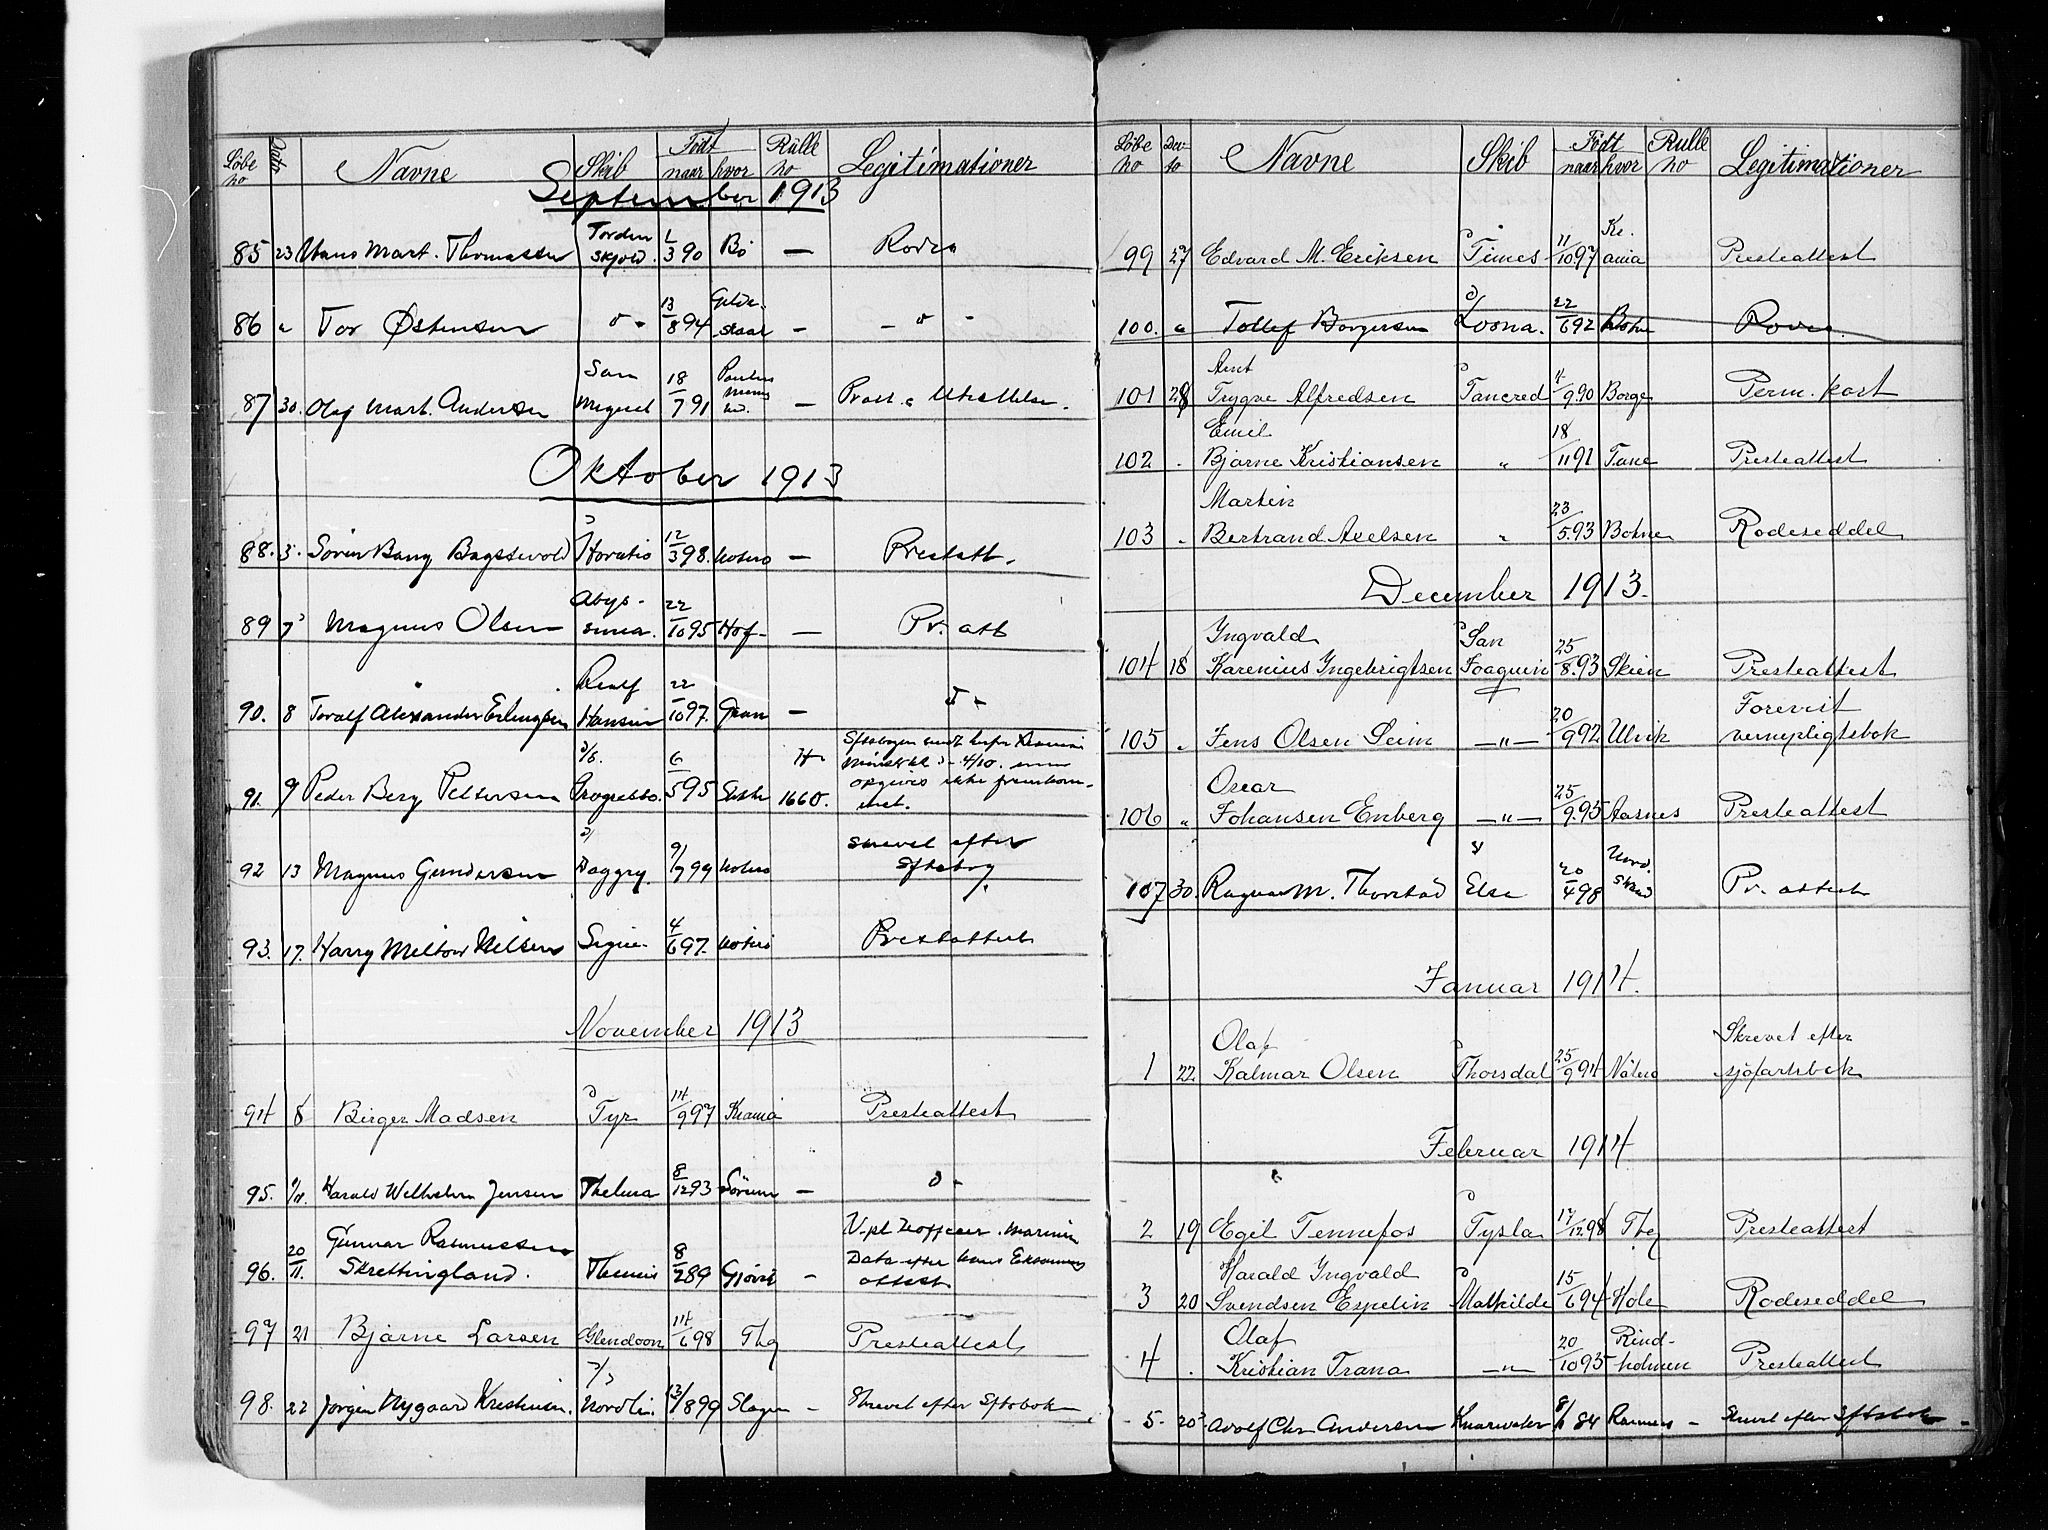 Løbe no Dato Navne Skib Født naar hvor Rulle no Legitimationer
September 1913
85 23 Hans Mart. Thomassen Tordenskjold 1/3 90 Bö — Rodes
86 " Tor Østensen 13/8 94 Gildeskaal —
87 30. Olaf Mart. Andersen San Miguel 18/7 91 —
Oktober 1913
88. 3. Sören Bang Horatio 12/3 98. Nøtterø — Prestatt.
89 7 Magnus Olsen Abyssinia. 22/10 95 Hof — Pr. att
90. 8 Toralf Alexander Erlingsen Hansen 22/10 97. Gran —
91. 9 Peder Berg Pettersen 6/5 95 H 1660.
92 13 Magnus Gundersen Daggry. 9/9 99 skrevet efter Sftsbog
93. 17. Harry Milton Nilsen Signe. 4/6 97. Prestattest
November 1913
94 8 Birger Madsen Tyr 14/9 97 Krania Presteattest
95. Harald Wilhelm Jensen Thelma 8/12 93 Sörum —
96. 20/11. Gunnar Rasmussen Skrettingland. Themis 8/2 89 Gjövik —
97 21 Bjarne Larsen Glendoon 14/6 98 Tbg Presteattest
98. 22 Jörgen Nygaard Kristensen. Nordli. 13/8 99 Slagen — Skrevet efter Sftsbok
Løbe no Dato Navne Skib Født naar hvor Rulle no Legitimationer
99 27 Edvard M. Eriksen Times 11/10 97 Kr. ania Presteattest
100. " Tollef Borgersen Loona. 22/6 92 Botne Rodes.
101 28 Arnt Trygve Alfredsen Tancred 4/9 90 Borge Perm. pas
102 . Emil Bjarne Kristiansen " 18/11 91 Presteattest
103 " Martin Bertrand Axelsen " 23/5 93 Botne Rodeseddel
December 1913.
104 18 Ingvald Karenius Ingebrigtsen San Joaquin 25/8 93 Skien Presteattest
105 " Jens Olsen Seim —"— 20/9 92 Ulvik Forevist vernepligtsbok
106 " Oscar Johansen Enberg —"— 25/9 95 Aasnes Presteattest
107 30. Ragnar M. Thorstad Elsa 20/4 98 Pr. attest
Januar 1914.
1 22 Olaf Kalmar Olsen Thorsdal 25/9 94 Nöterö Skrevet efter sjöfartsbok
Februar 1914
2 19 Egil Tennefos Tysla 17/12 98 Tbg Presteattest
3 20 Harald Ingvald Svendsen Espelin Mathilde 15/6 94 Hole Rodeseddel
4 . Olaf Kristian Trana —"— 20/10 93 Rindholmen Presteattest
5 20 Adolf Chr. Andersen Knarwater 84 Ramnes — Skrevet efter Sftsbok